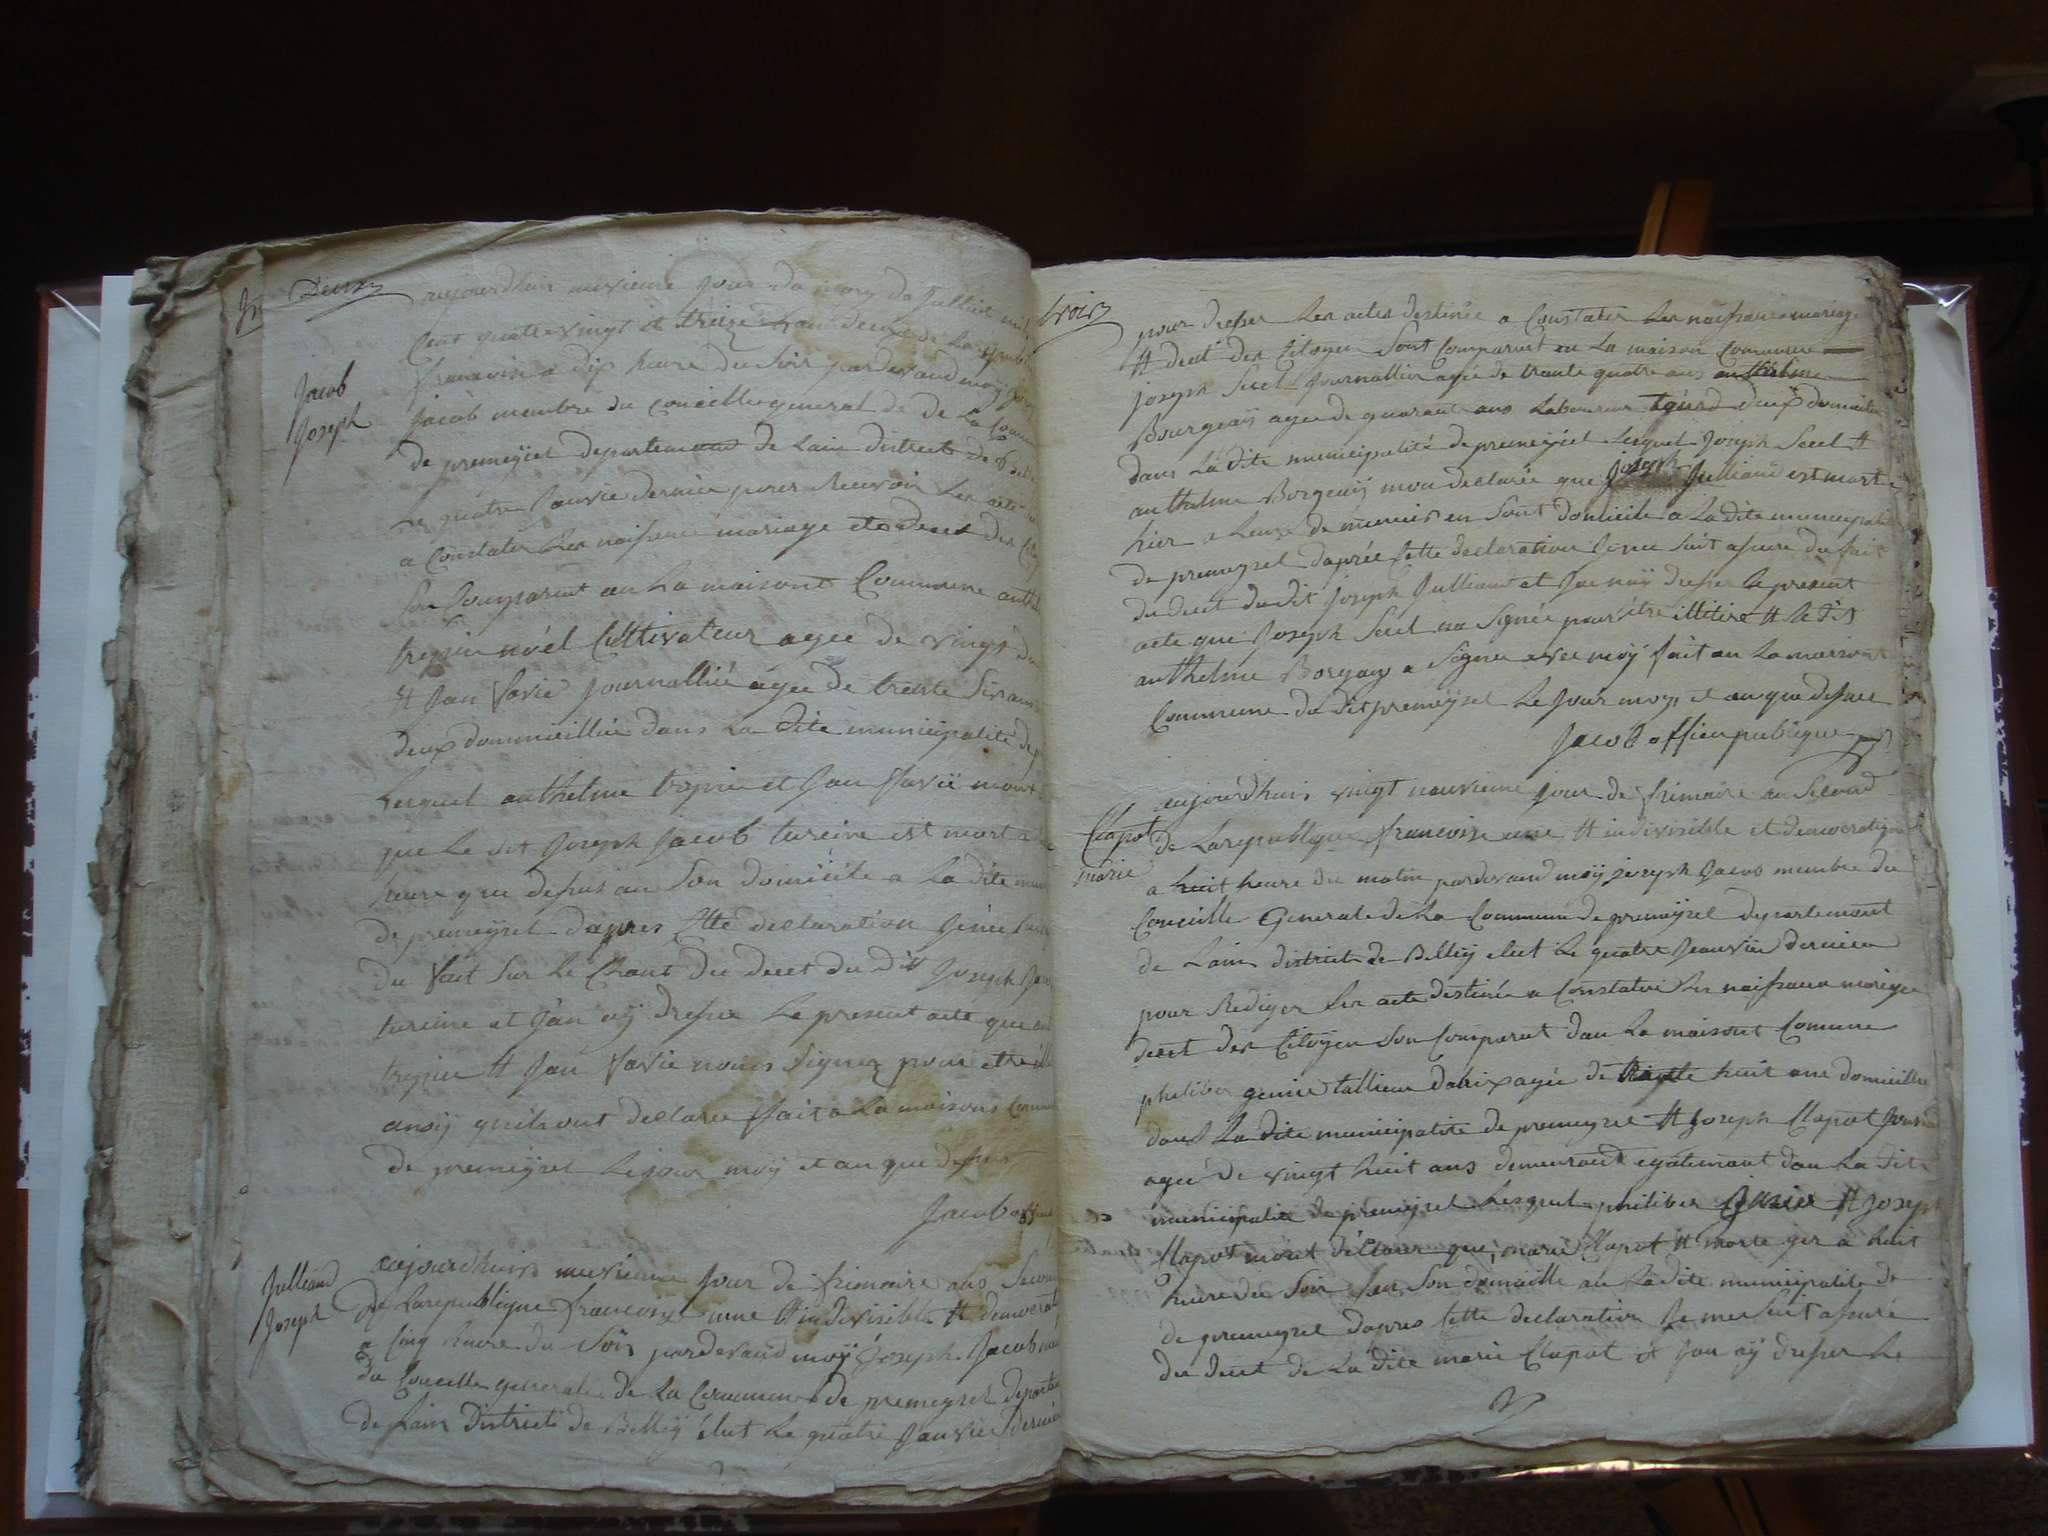 Deux
aujourdhuis nuvieme jour du moy de Juilliet mil
Cent quatre vingt et treize lan deuze de La republ
francoise a dix heure du Soir pardevand moy jose
Jacob
Joseph
Jacob membre du Conceille general de de La Comm
de premeyzel departemand de Lain district de Bell
Le quatre Janvie dernier pour Recevoir Les acte
a Constater Les naissence mariage et deces des Cito
Son Comparut au La maisont Commune anthel
trepin noel Cultivateur agee de vingt
tt Jan Savie journallié agee de trente Six ans
deux dommicillié dans La dite municipalité de p
Lesquel anthelme trepin et Jan Savie mont
que Le dit Joseph Jacob tureine est mort a
heure que desus au Son domicile a La dite mun
de premeyzel dapres Cette declaration
du fait Sur Le Chant du decet du dit Joseph Jac
tureine et Jan ay dresse Le present acte que
trepin tt Jan Savie nonis Signez pour etre ill
anoy quils ont declare fait a La maisons Commu
de premeyzel Le jour moy et an que desus
Jacob off
Julliand
Joseph
aujourdhuis nuvieme Jour de frimaire ans Secon
de Larepublique francoise une tt indivisible tt democrat
a Cinq heure du Soir pardevand moy Joseph Jacob me
du Conceille generale de La Commune de premeyzel depart
de Lain District de Belley élut Le quatre Janvie dernier
trois
pour dresser Les actes destinée a Constater Les naissance mariage
tt decet des Citoyen Sont Comparut au La maison Commune
joseph Seccel Journallier agee de trante quatre ans anthelme
Bourgeay agee de quarante ans Laboureur tourd deux domicilie
dans La dite municipalité de premeyzel Lesquel Joseph Secel tt
anthelme Borgeay mon declarée que joseph Julliand est mort
hier a Leure de en Sont domicile a La dite municipali
de premeyzel daprée Cette declaration Je me Suit assure du fait
du decet du dit Joseph Julliand et Jan nay dresser Le present
acte que Joseph Secel na Signée pour être illitire tt Le dit
anthelme Borgeay a Signer avec moy fait au La maisont
Commune du dit premeyzel Le Jour moy et an que desus
Jacob officier publique
aujourdhuis vingt nauvieme jour de frimaire an Second
Clapot
marie
de Larepublique francoise une tt indivisible et democratique
a huit heure du matin pardevand moy joseph Jacob membre du
Conceille Generale de La Commune de premeyzel departemant
de Lain district de Belley elut Le quatre Jeanvie dernier
pour Rediger Les acte destinée a Constater Les naissance mariage
decet des Citoyen Son Comparut dan La maisont Comune
philiber genin tallieur dabix agée de trante huit ans domicillie
dans La dite municipalite de premeyzel tt Joseph Clapot Journ
agée de vingt huit ans demeurant egalemant dan La dite
municipalite de premeyzel Lesquel philiber Genin tt Joseph
Clapot mont declarer que marie Clapot tt morte yer a huit
heure du Soir Sen Son domicille au La dite municipalite de
de premeyzel dapres Cette declaration Je me Suit assuré
du decet de La dite marie Clapot et Jan ay dresser Le